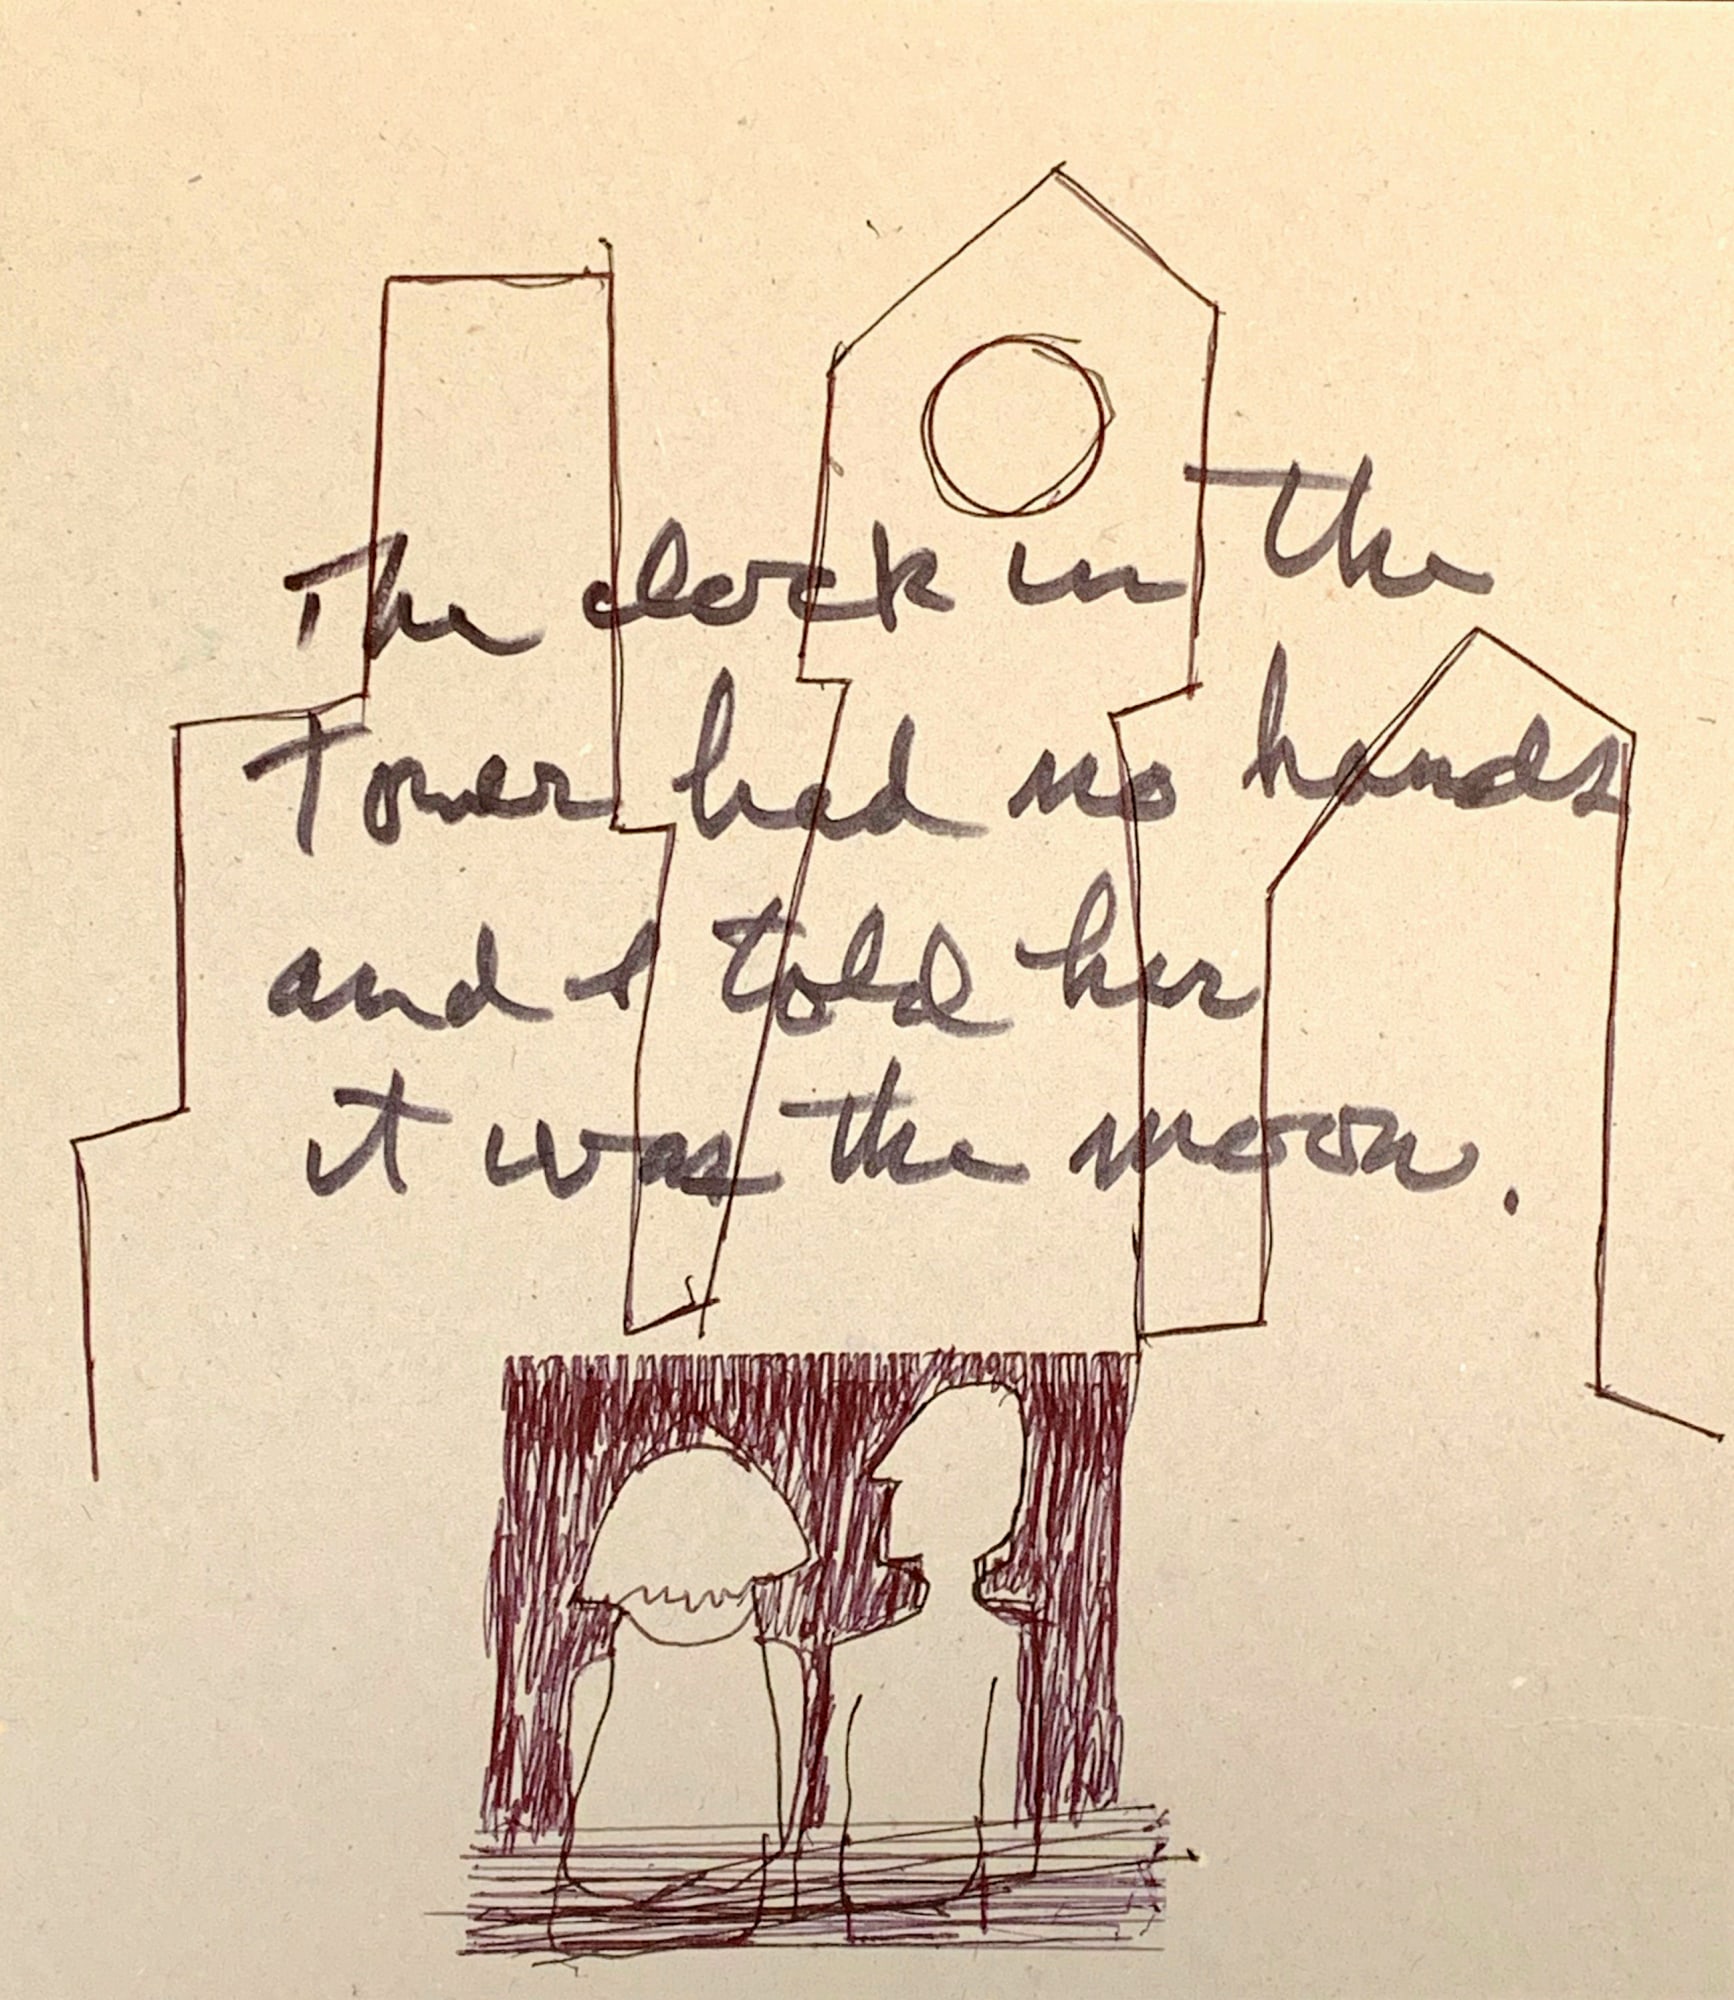 The clock in the
Tower had no hands
and I told her
it was the moon.